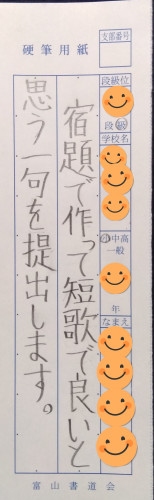 硬筆用紙
支部番号
段級位
段 級
学校名
小中高
一般
年
なまえ
宿題で作って短歌で良いと
思う一句を提出します。
富山書道会